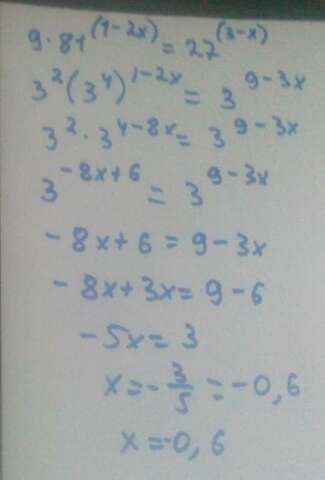 9·81^(1-2x) = 27^(3-x)
3^2(3^4)^1-2x = 3^9-3x
3^2·3^4-8x = 3^9-3x
3^-8x+6 = 3^9-3x
-8x+6 = 9-3x
-8x+3x = 9-6
-5x = 3
x = -3/5 = -0,6
x = -0,6